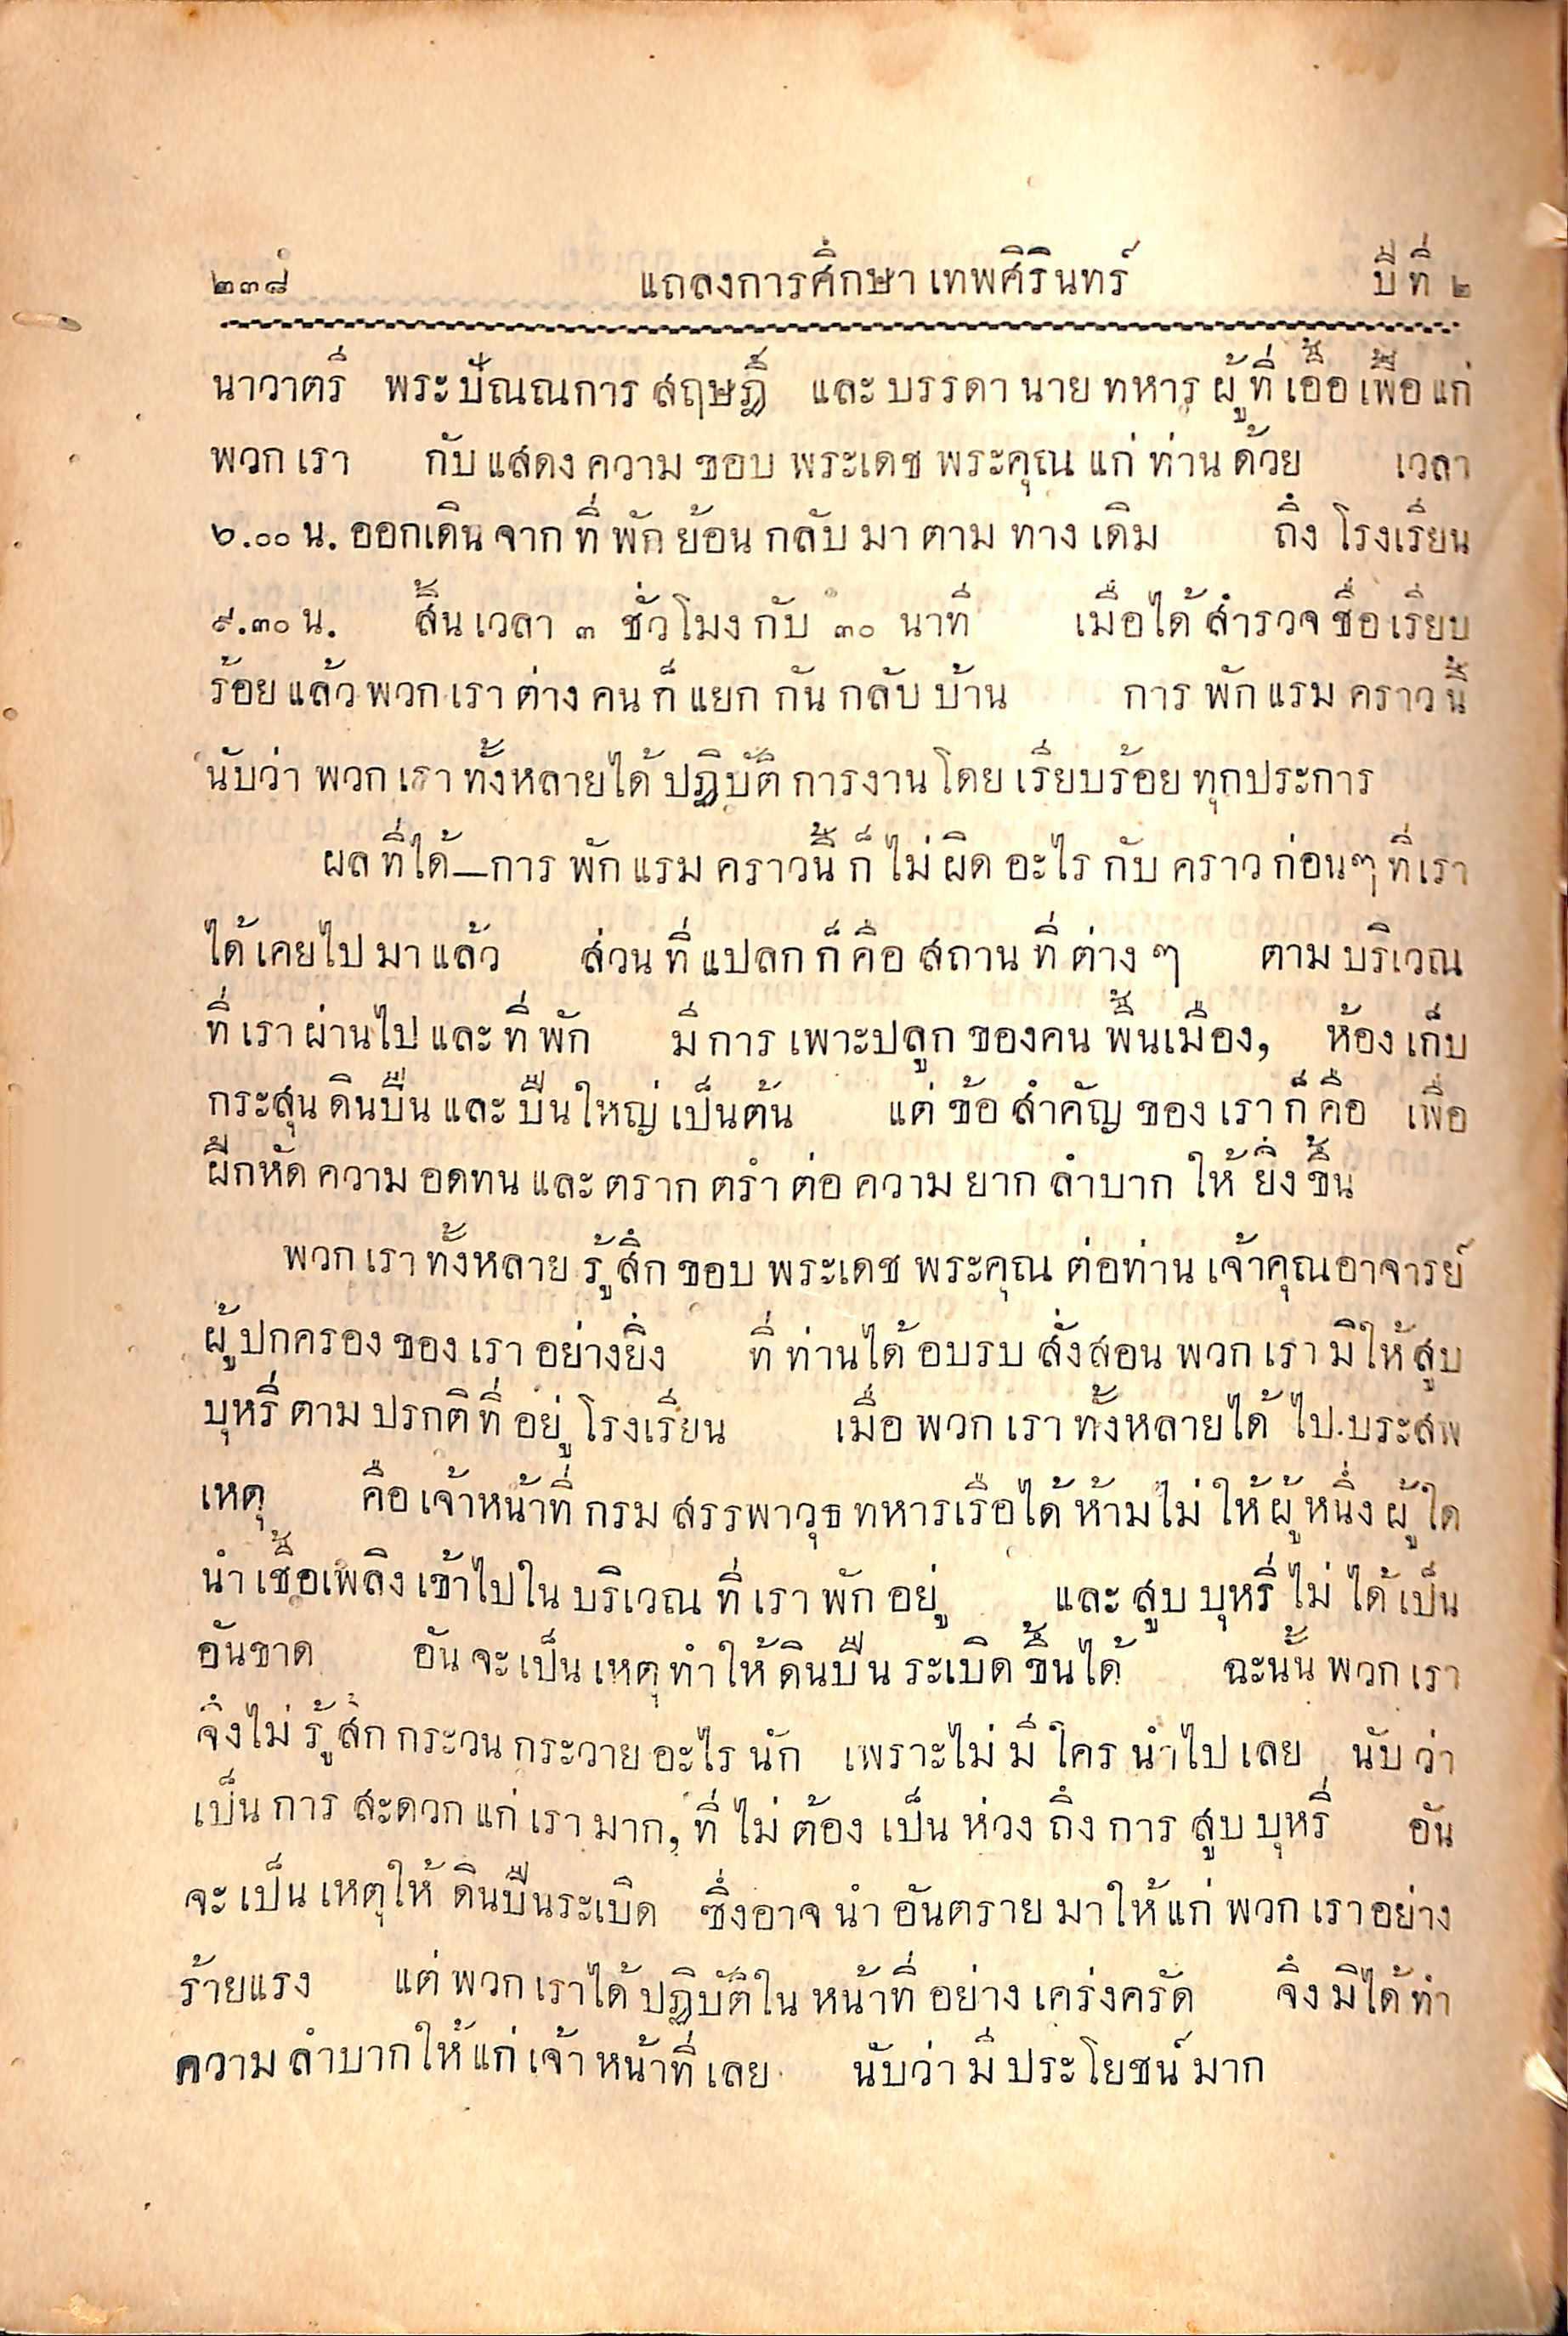 ๒๓๘ แถลงการศึกษาเทพศิรินทร์ ปีที่ ๒
นาวาตรี พระปัณณการสฤษฎิ์ และบรรดานายทหารผู้ที่เอื้อเพื้อแก่
พวกเรา กับแสดงความขอบพระเดชพระคุณแก่ท่านด้วย เวลา
๖.๐๐ น. ออกเดินจากที่พักย้อนกลับมาตามทางเดิม ถึงโรงเรียน
๙.๓๐ น. สิ้นเวลา ๓ ชั่วโมงกับ ๓๐ นาที เมื่อได้สำรวจชื่อเรียบ
ร้อยแล้วพวกเราต่างคนก็แยกกันกลับบ้าน การพักแรมคราวนี้
นับว่าพวกเราทั้งหลายได้ปฏิบัติการงานโดยเรียบร้อยทุกประการ
ผลที่ได้—การพักแรมคราวนี้ก็ไม่ผิดอะไรกับคราวก่อนๆ ที่เรา
ได้เคยไปมาแล้ว ส่วนที่แปลกก็คือสถานที่ต่างๆ ตามบริเวณ
ที่เราผ่านไปและที่พัก มีการเพาะปลูกของคนพื้นเมือง, ห้องเก็บ
กระสุนดินปืนและปืนใหญ่เป็นต้น แต่ข้อสำคัญของเราก็คือ เพื่อ
ฝึกหัดความอดทนและตรากตรำต่อความยากลำบากให้ยิ่งขึ้น
พวกเราทั้งหลายรู้สึกขอบพระเดชพระคุณต่อท่านเจ้าคุณอาจารย์
ผู้ปกครองของเราอย่างยิ่ง ที่ท่านได้อบรบสั่งสอนพวกเรามิให้สูบ
บุหรี่ตามปรกติที่อยู่โรงเรียน เมื่อพวกเราทั้งหลายได้ไปประสพ
เหตุ คือเจ้าหน้าที่กรมสรรพาวุธทหารเรือได้ห้ามไม่ให้ผู้หนึ่งผู้ใด
นำเชื้อเพลิงเข้าไปในบริเวณที่เราพักอยู่ และสูบบุหรี่ไม่ได้เป็น
อันขาด อันจะเป็นเหตุทำให้ดินปืนระเบิดขึ้นได้ ฉะนั้นพวกเรา
จึงไม่รู้สึกกระวนกระวายอะไรนัก เพราะไม่มีใครนำไปเลย นับว่า
เป็นการสะดวกแก่เรามาก, ที่ไม่ต้องเป็นห่วงถึงการสูบบุหรี่ อัน
จะเป็นเหตุให้ดินปืนระเบิด ซึ่งอาจนำอันตรายมาให้แก่พวกเราอย่าง
ร้ายแรง แต่พวกเราได้ปฏิบัติในหน้าที่อย่างเคร่งครัด จึงมิได้ทำ
ความลำบากให้แก่เจ้าหน้าที่เลย นับว่ามีประโยชน์มาก